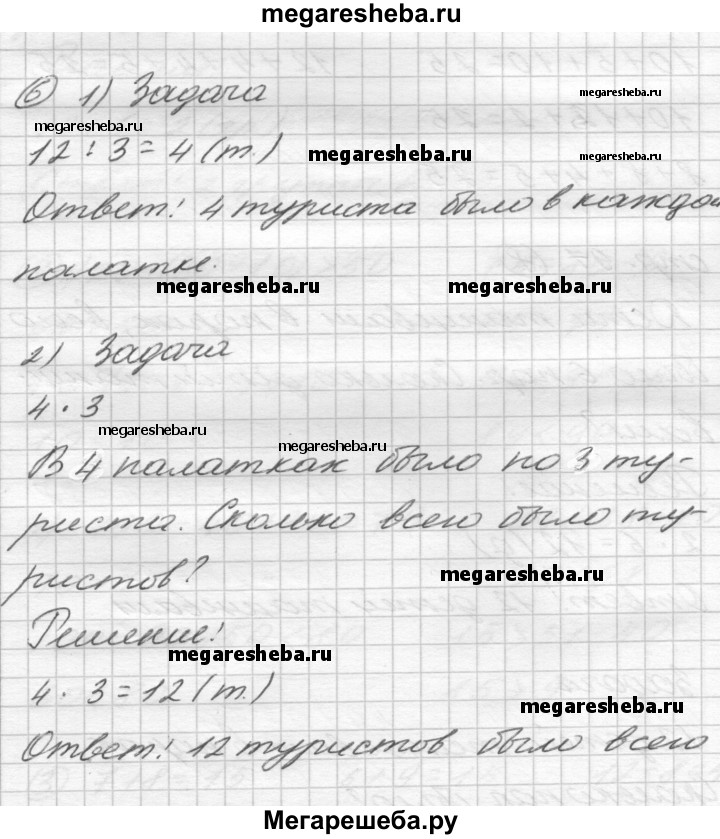 megaresheba.ru
6 1) Задача
megaresheba.ru
megaresheba.ru
12 : 3 = 4 (т.)
megaresheba.ru
megaresheba.ru
Ответ: 4 туриста было в каждой
палатке.
megaresheba.ru
megaresheba.ru
2) Задача
4 · 3
megaresheba.ru
megaresheba.ru
В 4 палатках было по 3 ту-
риста. Сколько всего было ту-
ристов?
megaresheba.ru
Решение:
megaresheba.ru
4 · 3 = 12 (т.)
megaresheba.ru
Ответ: 12 туристов было всего
Мегарешеба.ру